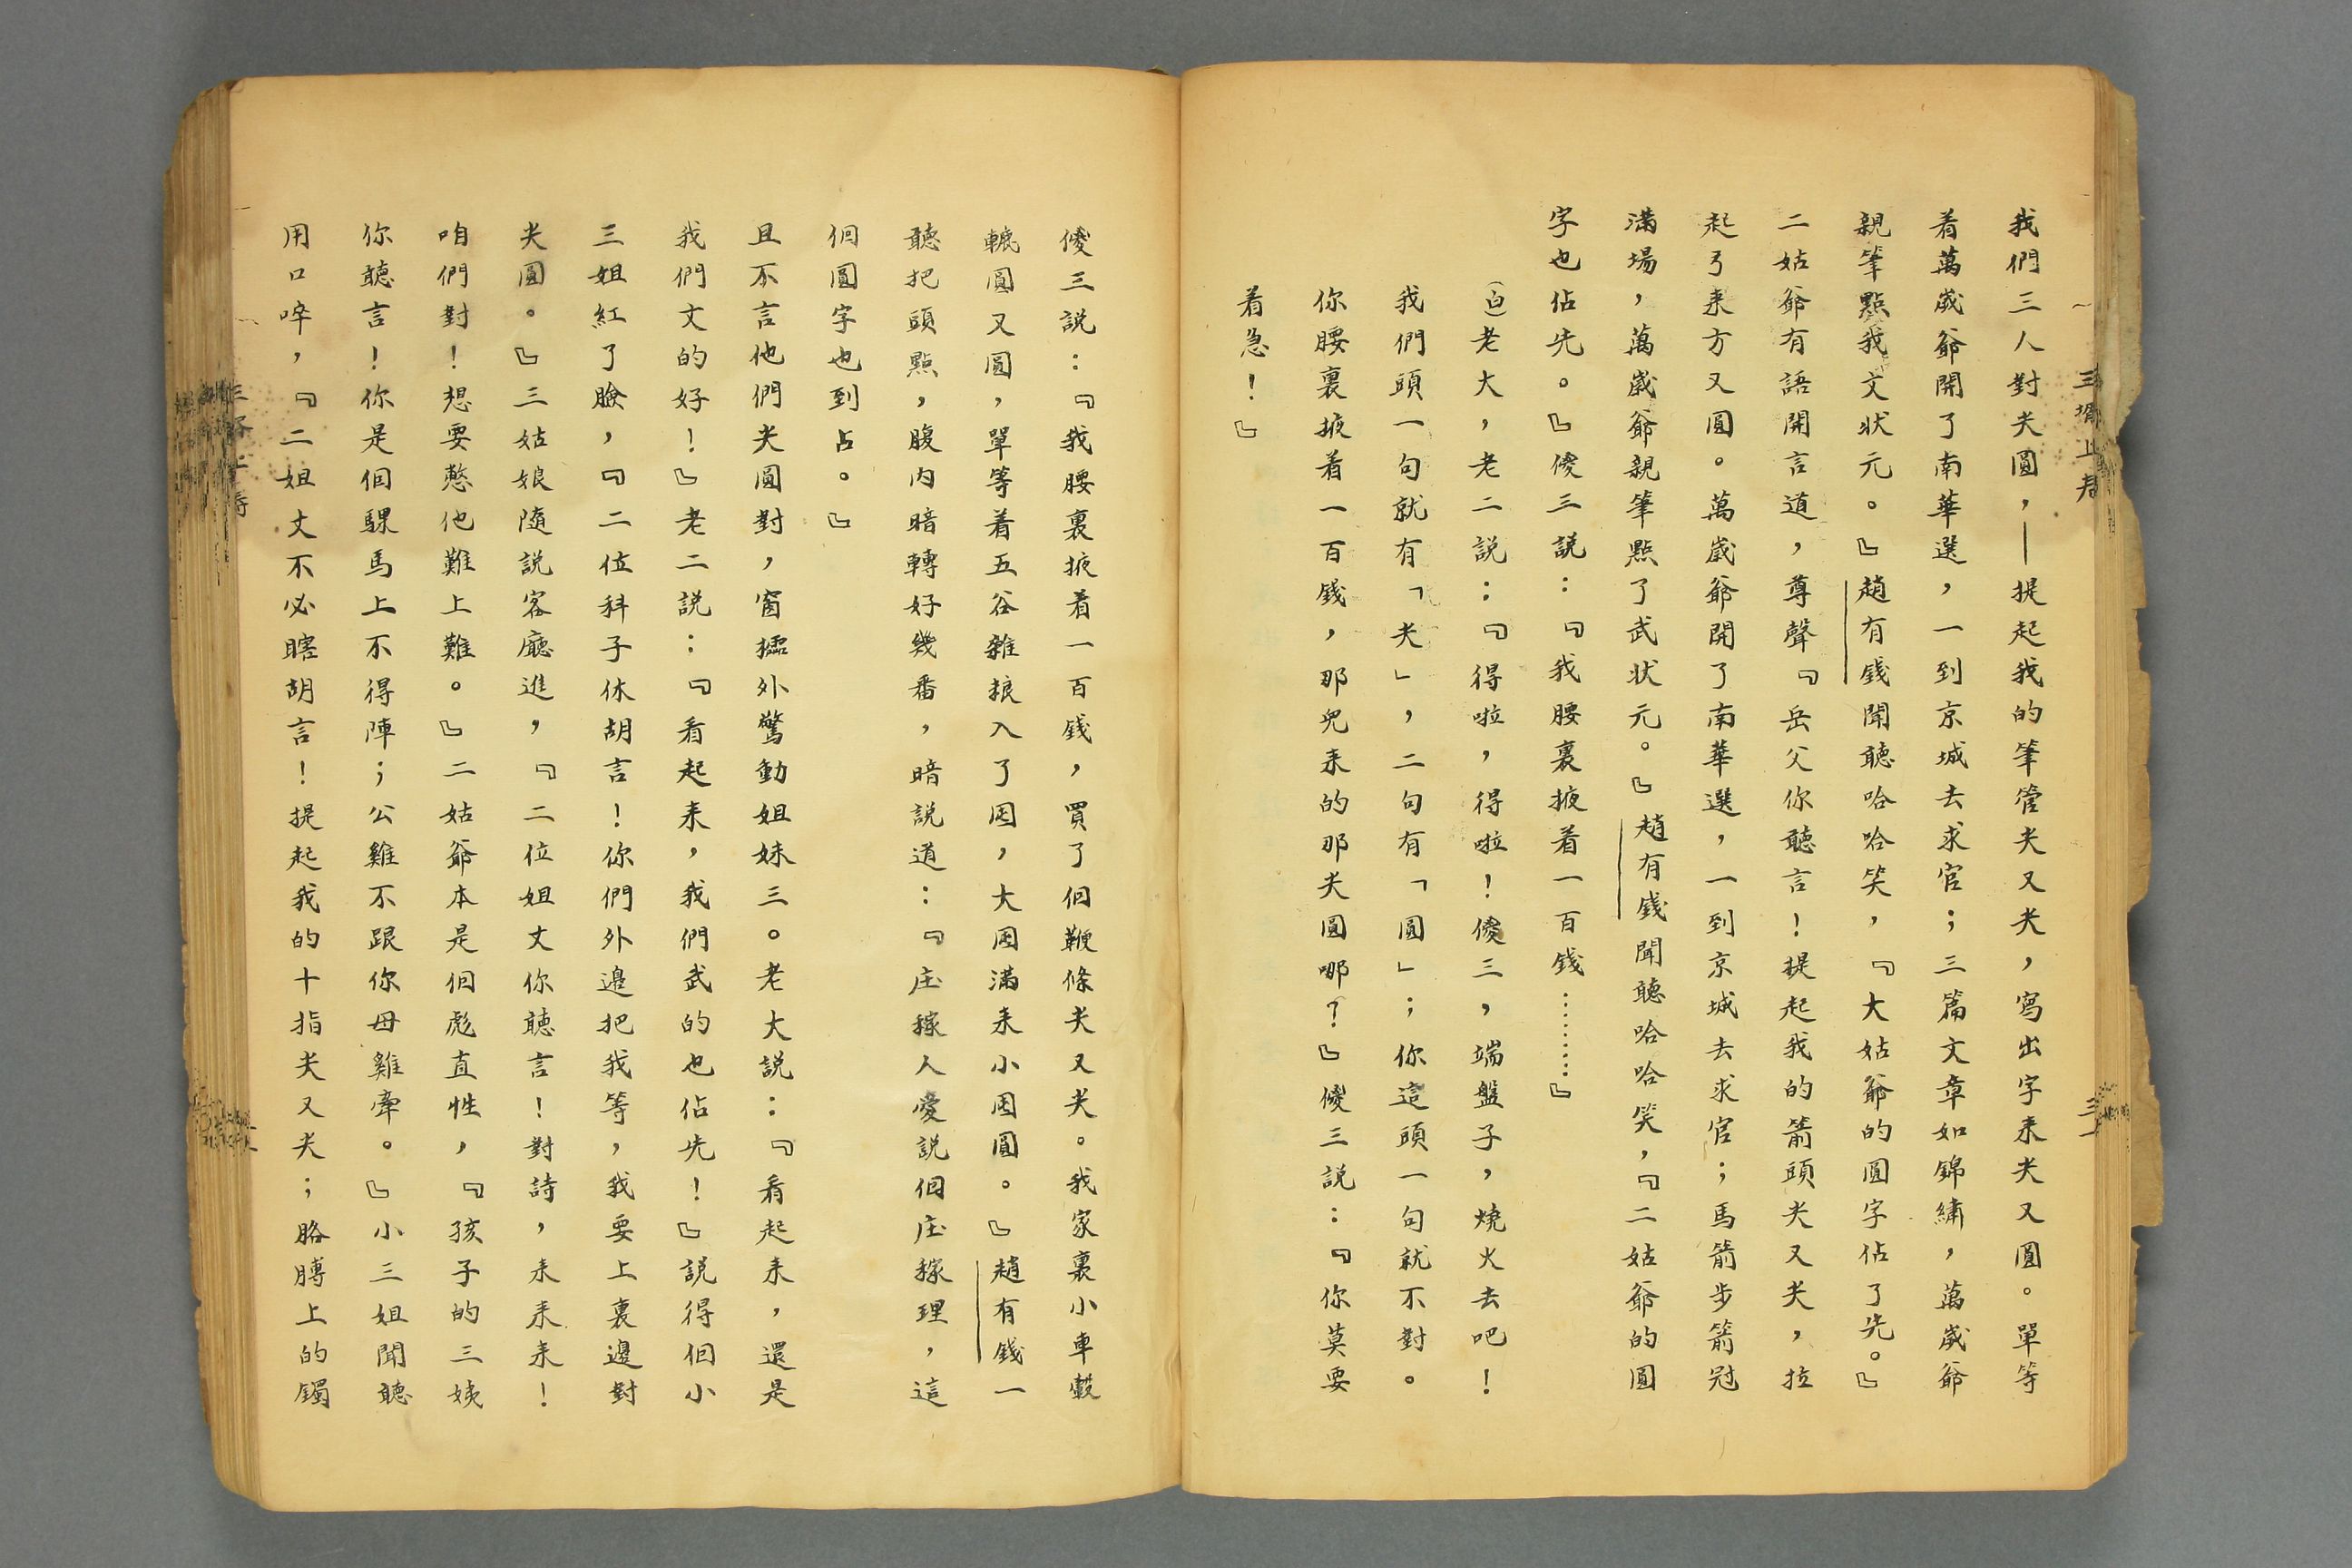 三壻上壽
三一
我們三人對尖圓，——提起我的筆管尖又尖，寫出字来尖又圓。單等
着萬歲爺開了南華選，一到京城去求官；三篇文章如錦繡，萬歲爺
親筆點我文状元。』趙有錢聞聽哈哈笑，『大姑爺的圓字佔了先。』
二姑爺有語開言道，尊聲『岳父你聽言！提起我的箭頭尖又尖，拉
起弓来方又圓。萬歲爺開了南華選，一到京城去求官；馬箭步箭冠
滿場，萬歲爺親筆點了武状元。』趙有錢聞聽哈哈笑，『二姑爺的圓
字也佔先。』傻三説：『我腰裏掖着一百錢………』
（白）老大，老二説：『得啦，得啦！傻三，端盤子，燒火去吧！
我們頭一句就有「尖」，二句有「圓」；你這頭一句就不對。
你腰裏掖着一百錢，那兒来的那尖圓哪？』傻三説：『你莫要
着急！』
傻三説：『我腰裏掖着一百錢，買了個鞭條尖又尖。我家裏小車轂
轆圓又圓，單等着五谷雜粮入了囤，大囤滿来小囤圓。』趙有錢一
聽把頭點，腹内暗轉好幾番，暗説道：『庄稼人愛説個庄稼理，這
個圓字也到占。』
且不言他們尖圓對，窗櫺外驚動姐妹三。老大説：『看起来，還是
我們文的好！』老二説：『看起来，我們武的也佔先！』説得個小
三姐紅了臉，『二位科子休胡言！你們外邊把我等，我要上裏邊對
尖圓。』三姑娘隨説客廳進，『二位姐丈你聽言！對詩，来来来！
咱們對！想要憨他難上難。』二姑爺本是個彪直性，『孩子的三姨
你聽言！你是個騍馬上不得陣；公雞不跟你母雞牽。』小三姐聞聽
用口啐，『二姐丈不必瞎胡言！提起我的十指尖又尖；胳膊上的镯